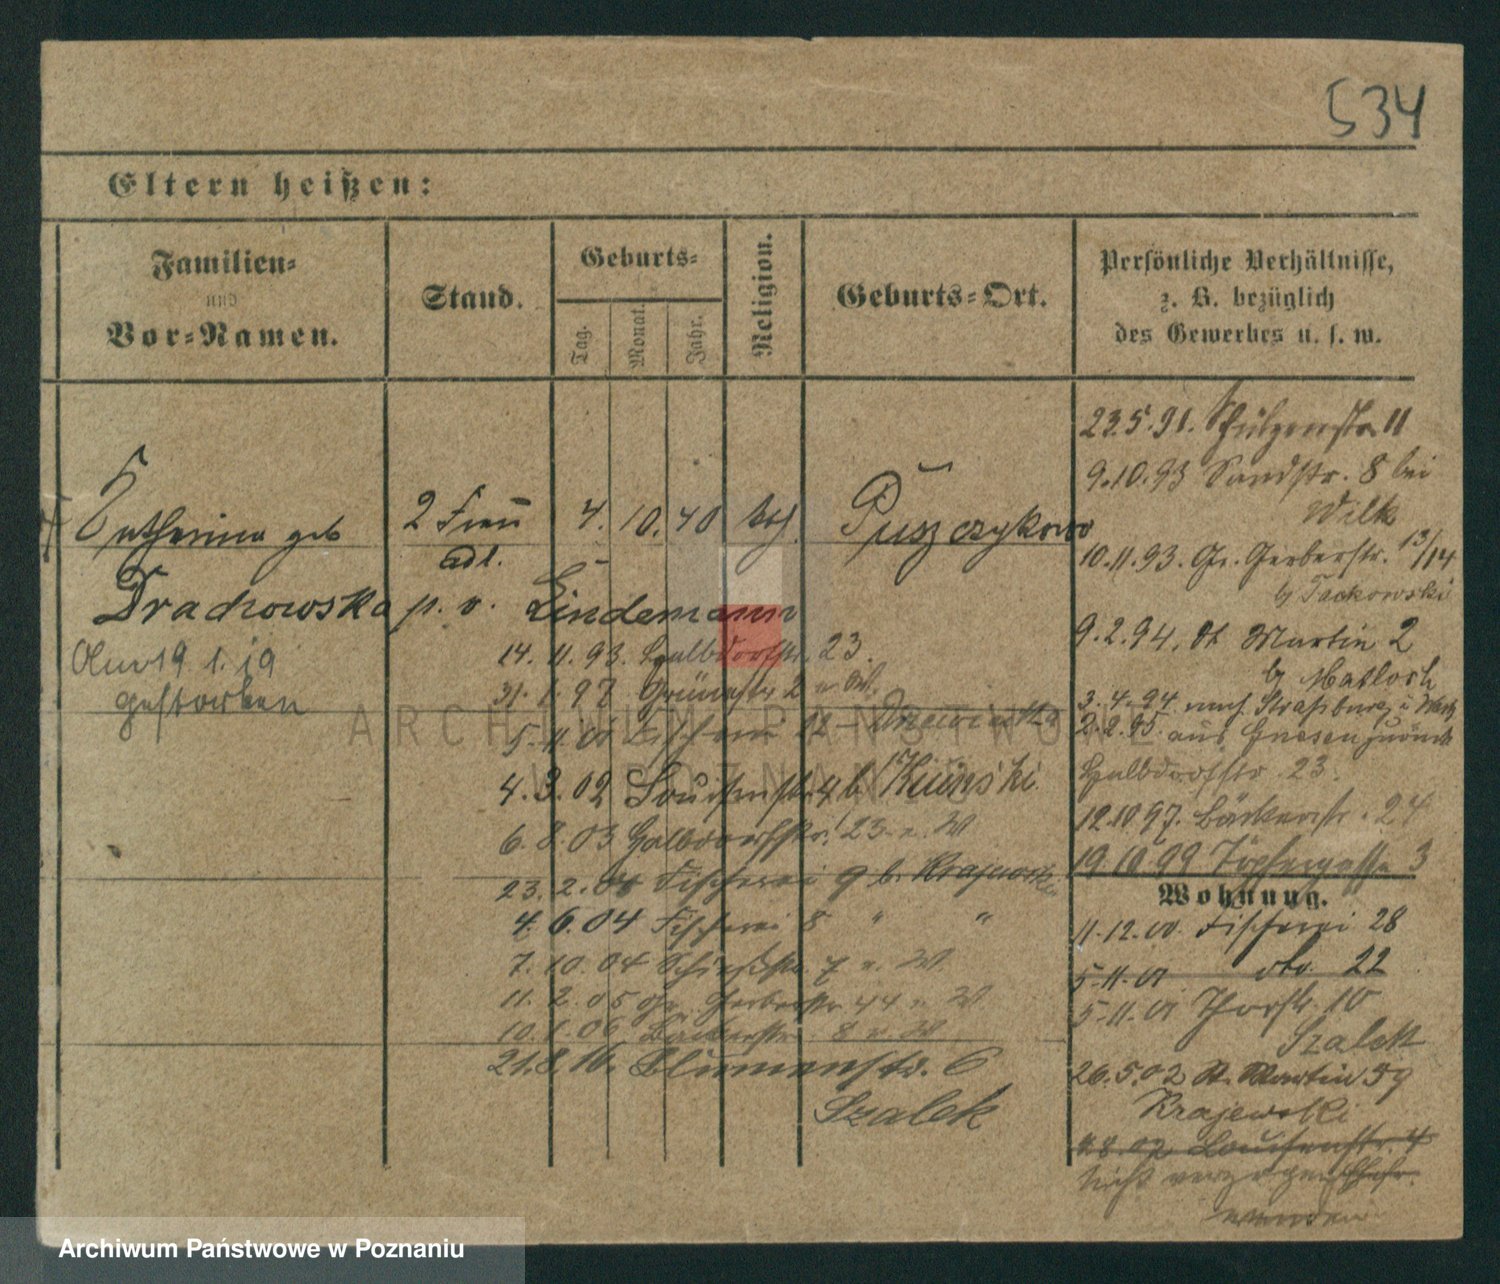 534
Eltern heißen:
Familien- und Vor-Namen.
Stand.
Geburts-
Tag.
Monat.
Jahr.
Religion.
Geburts-Ort.
Persönliche Verhältnisse,
z. B. bezüglich
des Gewerbes u. s. w.
Catharina geb
2 Frau
4. 10. 40
Puszczykowo
adl.
Drachowska p. v. Lindemann
19. 1. 19
gestorben
14. 11. 93. Halbdorfstr. 23.
31. 1. 97 Grünestr 2
5. 11. 00 Fischerei
4. 3. 02 Louisenstr 4 b
6. 8. 03 Halbdorfstr. 23
23. 2. 04 Fischerei 9 b. Krajewski
4. 6. 04 Fischerei 8 " "
7. 10. 04 Schießstr. 7
11. 2. 05 Gr. Gerberstr 44
10. 1. 06 Bäckerstr. 8
21. 8. 16. Blumenstr. 6
Szalek
23. 5. 91. Schützenstr 11
9. 10. 93 Sandstr. 8 bei
Wilk
10. 11. 93. Gr. Gerberstr. 13/14
b Tackowski
9. 2. 94. St Martin 2
b Matloch
3. 4. 94. nach Straßburg
2. 2. 95. aus Gnesen zurück
Halbdorfstr. 23.
12. 10 97. Bäckerstr. 24
19. 10. 99 Töpfergasse 3
Wohnung.
11. 12. 00. Fischerei 28
5. 11. 01 dto. 22
5. 11. 01 Thorstr. 10
Szalek
26. 5. 02 St. Martin 59
Krajewski
Louisenstr. 4
nicht verzogen
wenden
ARCHIWUM PAŃSTWOWE
W POZNANIU
Archiwum Państwowe w Poznaniu